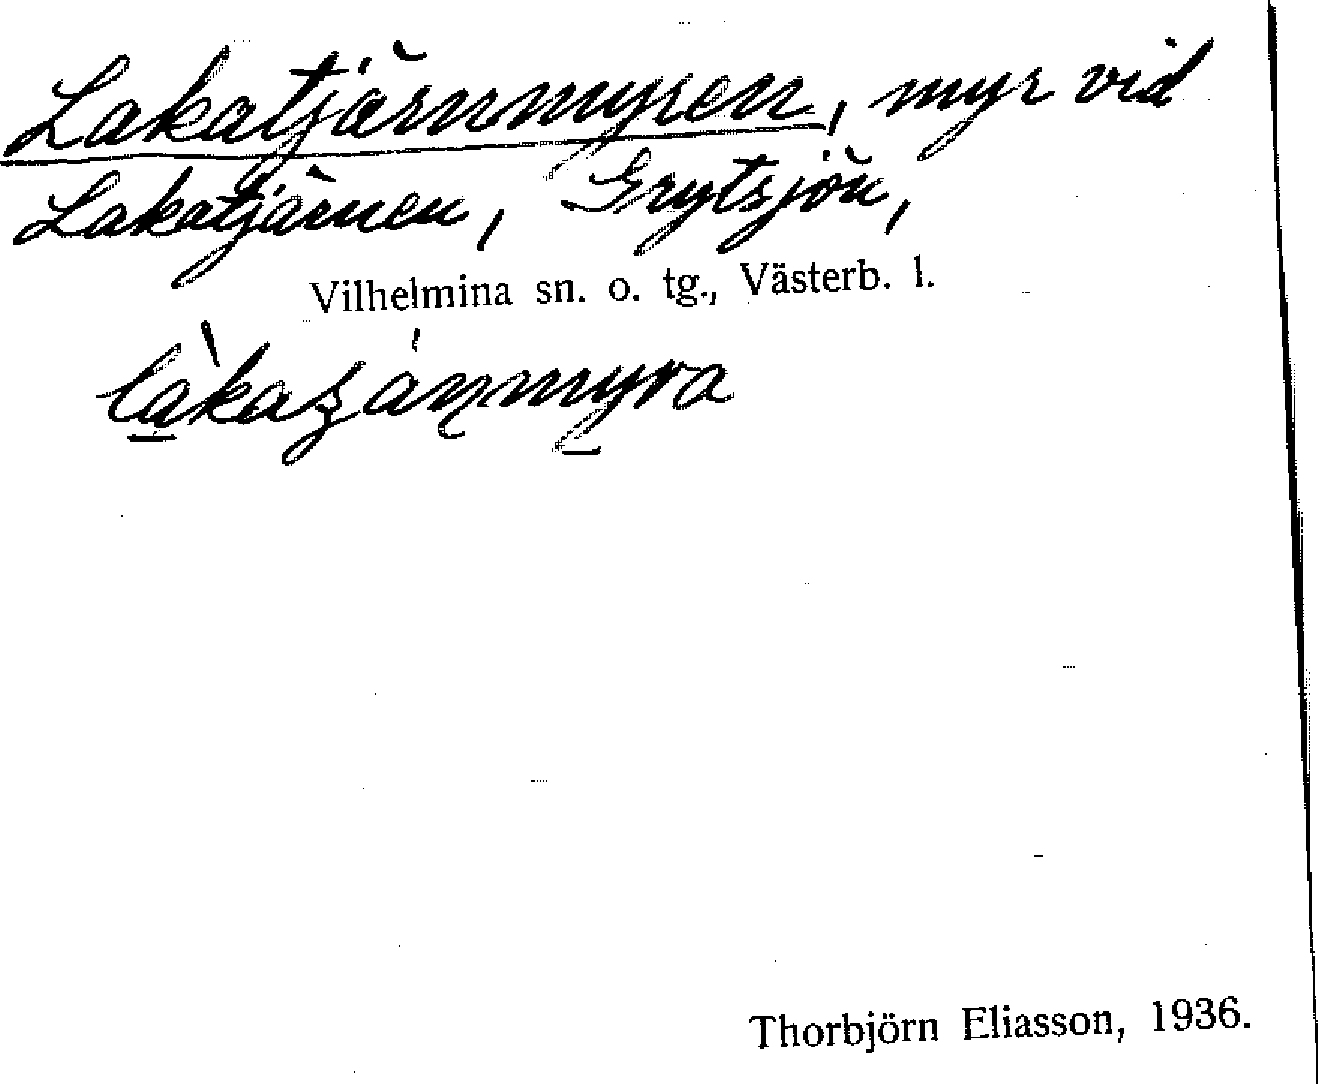 Lakatjärnmyren, myr vid
Lakatjärnen, Grytsjön,
Vilhelmina sn. o. tg., Västerb. l.
Thorbjörn Eliasson, 1936.